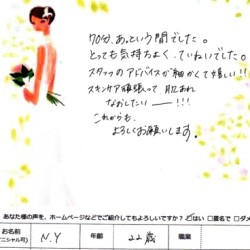 70分、あっという間でした。
とっても気持ちよく、ていねいでした。
スタッフのアドバイスが細かくて嬉しい!!
スキンケア頑張って肌あれ
なおしたいー!!!
これからも
よろしくお願いします。
あなた様の声を、ホームページなどでご紹介してもよろしいですか？ はい □匿名で □ダメ
お名前 N.Y 年齢 22歳 職業
ニシャル可)